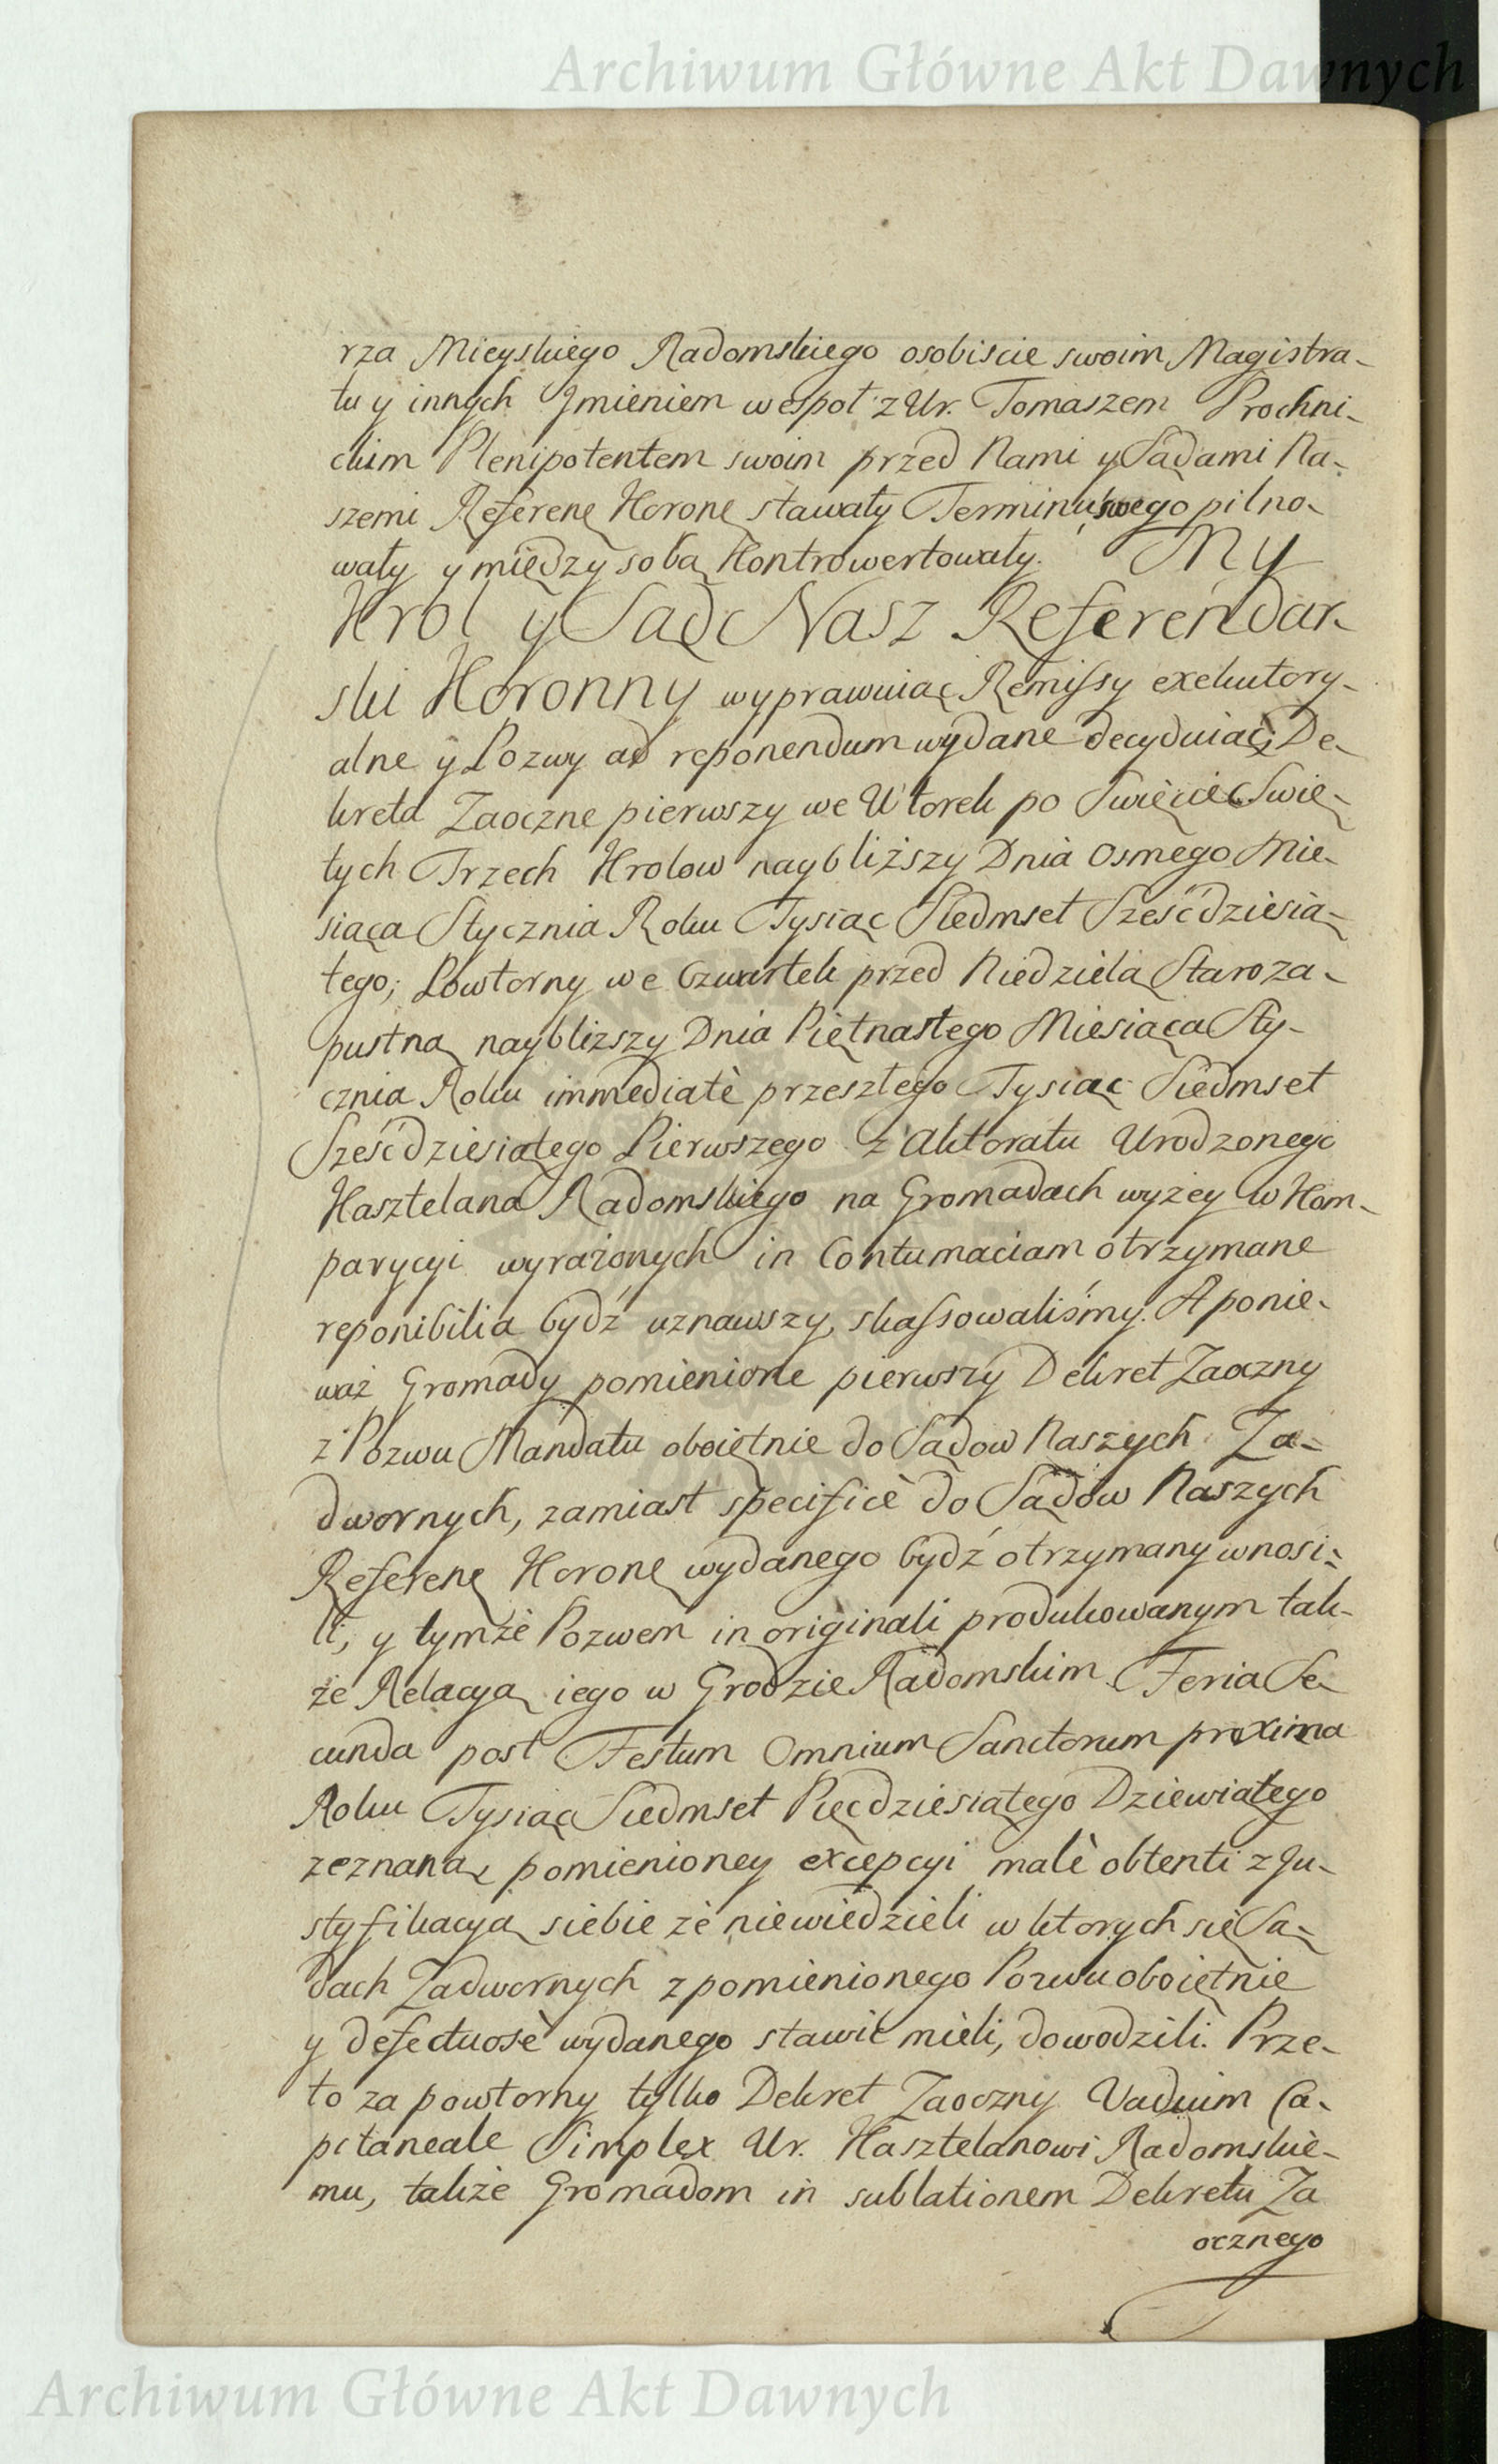 Archiwum Główne Akt Dawnych
rza Mieyskiego Radomskiego osobiscie swoim Magistra-
tu y innych Jmieniem wespoł z Ur. Tomaszem Prochni-
ckim Plenipotentem swoim przed Nami y Sądami Na-
szemi Referenę Koronę stawały Terminu swego pilno-
wały y między sobą Kontrowertowały. My
Krol y Sąd Nasz Referendar-
ski Koronny wyprawuiąc Remissy exekutory-
alne y Pozwy ad reponendum wydane decyduiąc, De-
kreta Zaoczne pierwszy we Wtorek po Swięcie Swię-
tych Trzech Krolow naybliższy Dnia Osmego Mie-
siąca Stycznia Roku Tysiąc Siedmset Sześćdziesią-
tego; Powtorny we Czwartek przed Niedzielą Staroza-
pustną naybliższy Dnia Piętnastego Miesiąca Sty-
cznia Roku immediatè przeszłego Tysiąc Siedmset
Sześćdziesiątego Pierwszego z Aktoratu Urodzonego
Kasztelana Radomskiego na Gromadach wyżey w Kom-
parycyi wyrażonych in Contumaciam otrzymane
reponibilia bydź uznawszy, skassowaliśmy. A ponie-
waż Gromady pomienione pierwszy Dekret Zaoczny
z Pozwu Mandatu oboiętnie do Sądow Naszych Za-
dwornych, zamiast specificè do Sądow Naszych
Referenę Koronę wydanego bydź otrzymany wnosi-
li, y tymże Pozwem in originali produkowanym tak-
że Relacyą iego w Grodzie Radomskim Feria Se-
cunda post Festum Omnium Sanctorum proxima
Roku Tysiąc Siedmset Pięćdziesiątego Dziewiątego
zeznaną, pomienioney excepcyi malè obtenti z Ju-
styfikacyą siebie że niewiedzieli w ktorych się Są-
dach Zadwornych z pomienionego Pozwu oboiętnie
y defectuosè wydanego stawić mieli, dowodzili. Prze-
to za powtorny tylko Dekret Zaoczny Vadium Ca-
pitaneale Simplex Ur. Kasztelanowi Radomskie-
mu, także Gromadom in sublationem Dekretu Za
ocznego
Archiwum Główne Akt Dawnych